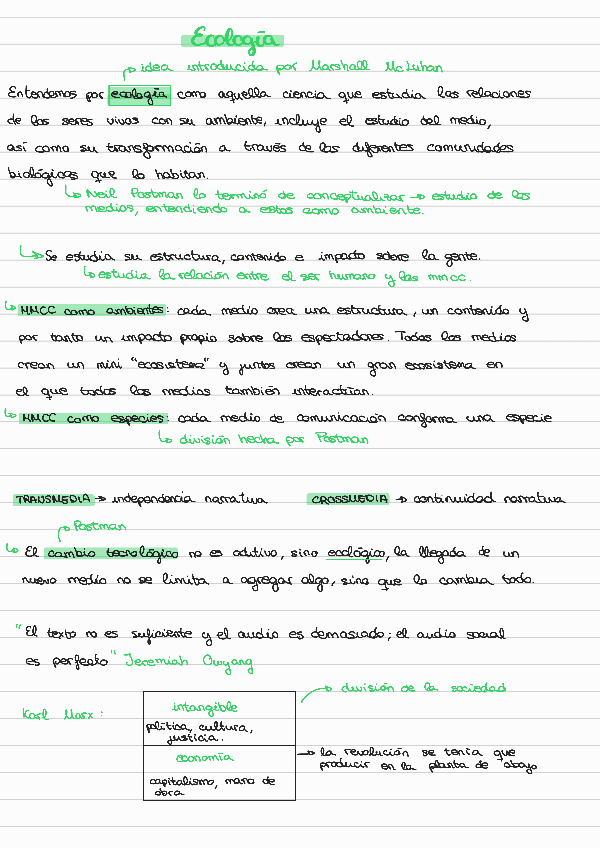 Ecología
idea introducida por Marshall McLuhan
Entendemos por ecología como aquella ciencia que estudia las relaciones
de los seres vivos con su ambiente, incluye el estudio del medio,
así como su transformación a través de las diferentes comunidades
biológicas que lo habitan.
Neil Postman lo terminó de conceptualizar → estudio de los
medios, entendiendo a estos como ambiente.
Se estudia su estructura, contenido e impacto sobre la gente.
estudia la relación entre el ser humano y los mmcc.
MMCC como ambientes: cada medio crea una estructura, un contenido y
por tanto un impacto propio sobre los espectadores. Todos los medios
crean un mini "ecosistema" y juntos crean un gran ecosistema en
el que todos los medios también interactúan.
MMCC como especies: cada medio de comunicación conforma una especie
división hecha por Postman
TRANSMEDIA → independencia narrativa CROSSMEDIA → continuidad narrativa
Postman
El cambio tecnológico no es aditivo, sino ecológico, la llegada de un
nuevo medio no se limita a agregar algo, sino que lo cambia todo.
"El texto no es suficiente y el audio es demasiado; el audio social
es perfecto" Jeremiah Owyang
división de la sociedad
Karl Marx:
intangible
política, cultura,
justicia.
economía
capitalismo, mano de
obra
→ la revolución se tenía que
producir en la planta de abajo